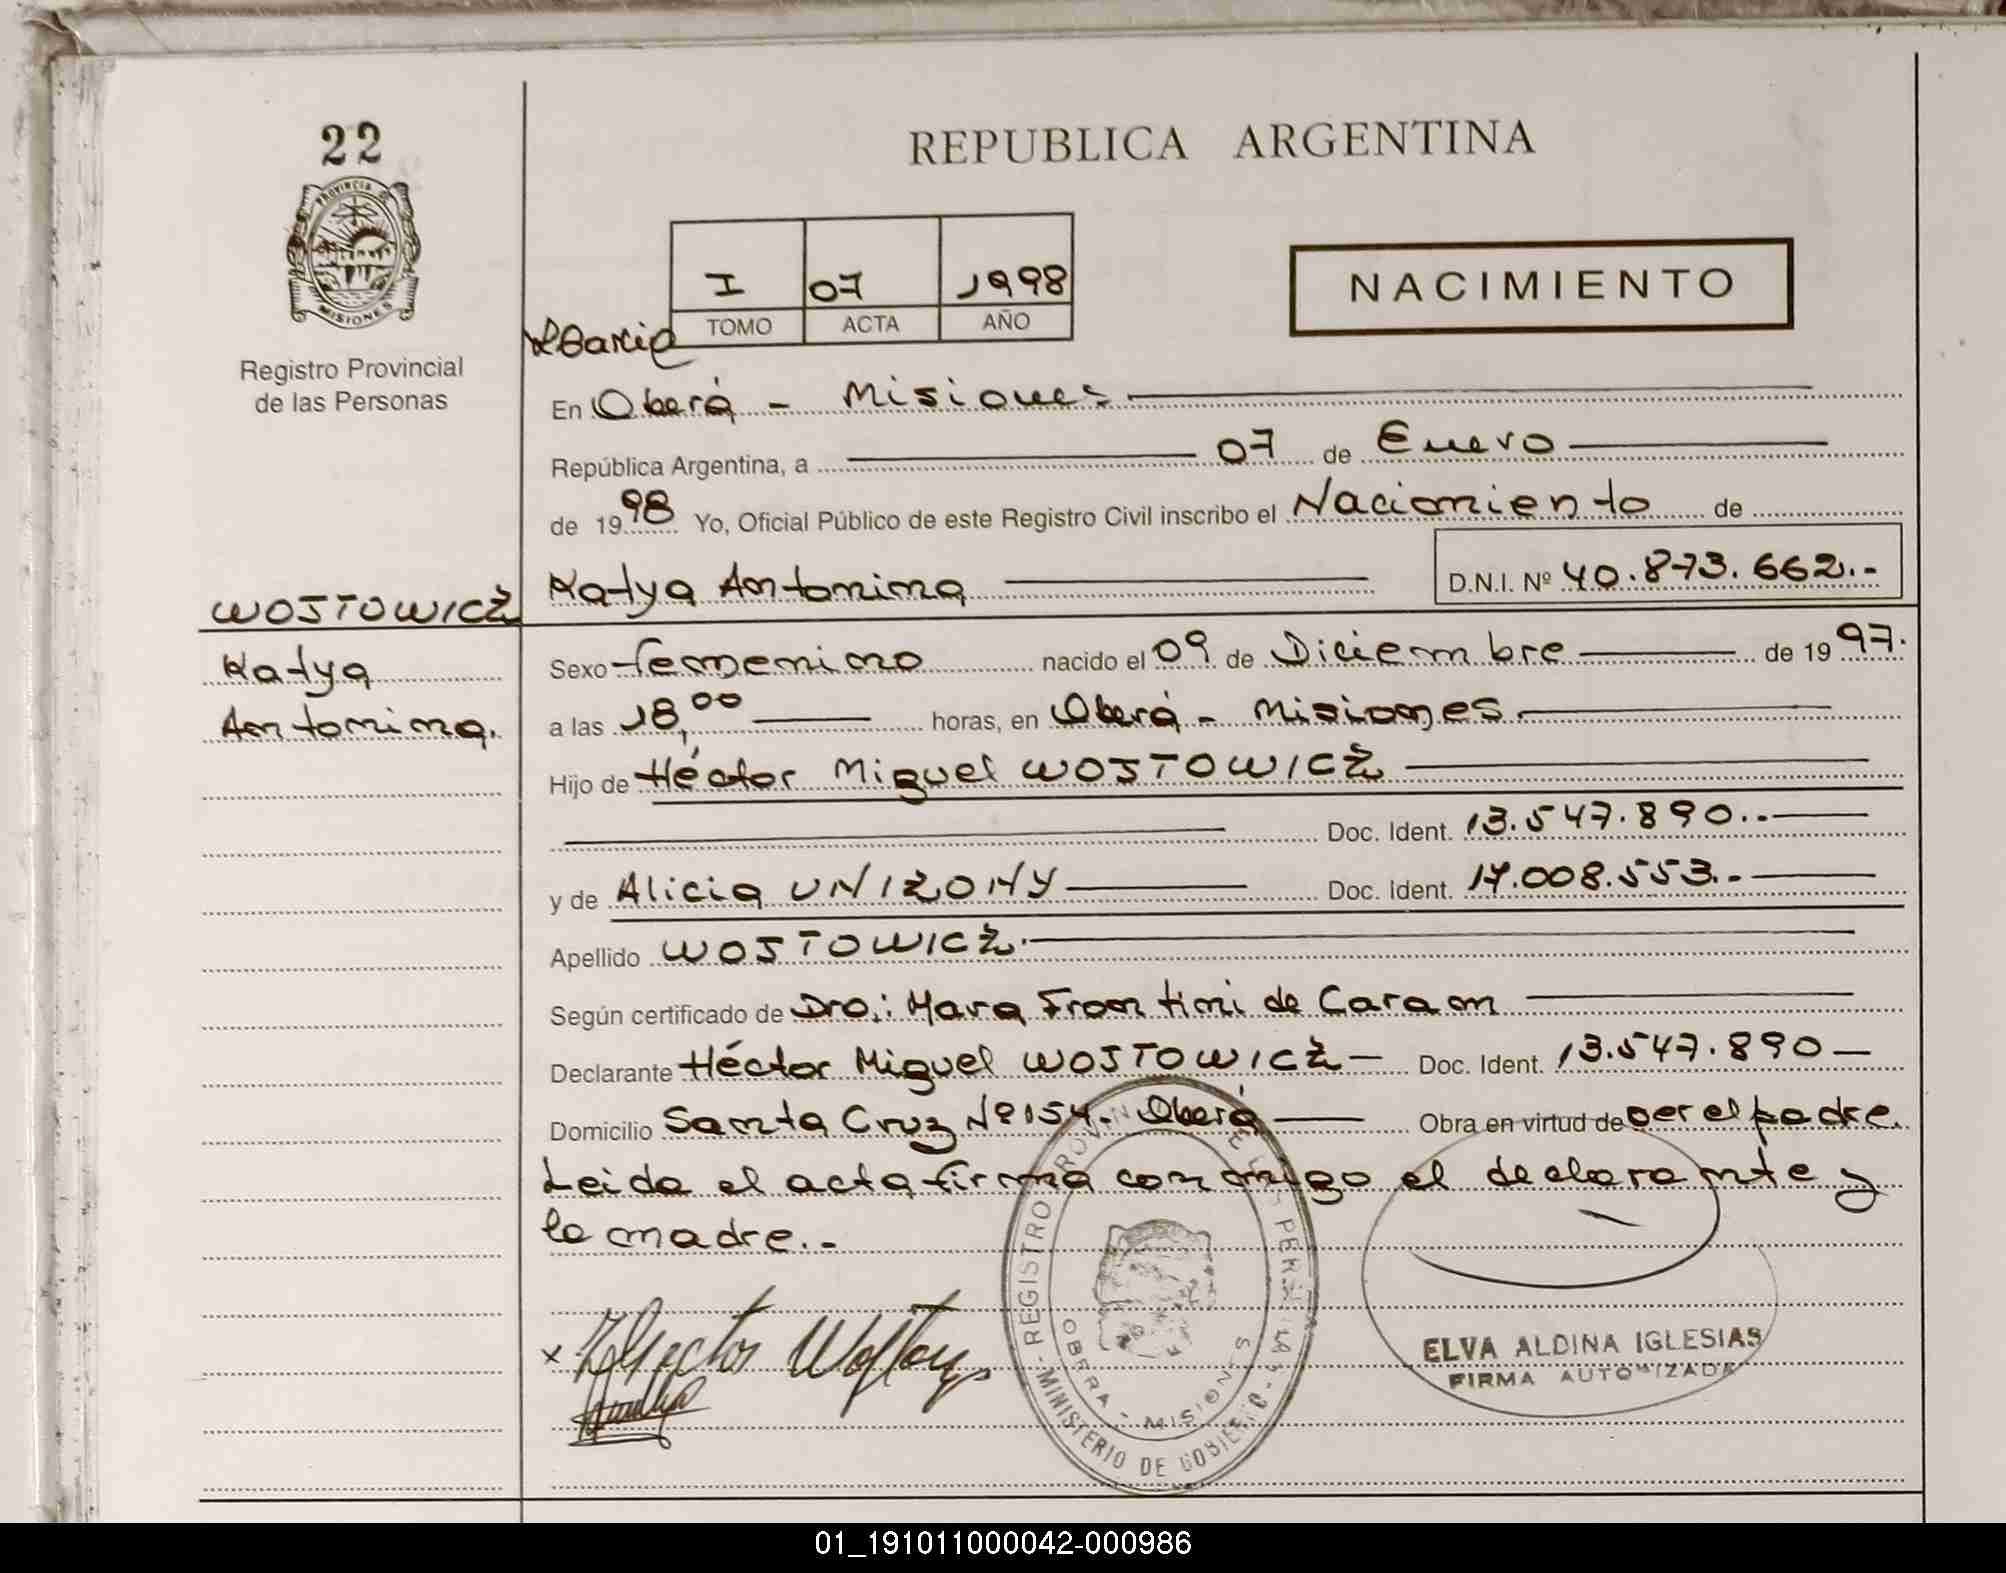 22
REPUBLICA ARGENTINA
PROVINCIA DE
MISIONES
Registro Provincial
de las Personas
I 07 1998
TOMO ACTA AÑO
NACIMIENTO
En Oberá - Misiones
República Argentina, a 07 de Enero
de 1998 Yo, Oficial Público de este Registro Civil inscribo el Nacimiento de
Katya Antonina D.N.I. Nº 40.873.662.-
WOJTOWICZ
Katya
Antonina.
Sexo femenino nacido el 09 de Diciembre de 1997.
a las 18,00 horas, en Oberá - Misiones
Hijo de Héctor Miguel WOJTOWICZ
Doc. Ident. 13.547.890.-
y de Alicia UNIZONY Doc. Ident. 17.008.553.-
Apellido WOJTOWICZ.
Según certificado de Dra.: Mara Frontini de Caram
Declarante Héctor Miguel WOJTOWICZ Doc. Ident. 13.547.890
Domicilio Santa Cruz Nº 154. Oberá Obra en virtud de ser el padre.
Leida el acta firma conmigo el declarante y
la madre.-
REGISTRO PROVINCIAL DE LAS PERSONAS
MINISTERIO DE GOBIERNO
OBERA - MISIONES
ELVA ALDINA IGLESIAS
FIRMA AUTORIZADA
01_191011000042-000986